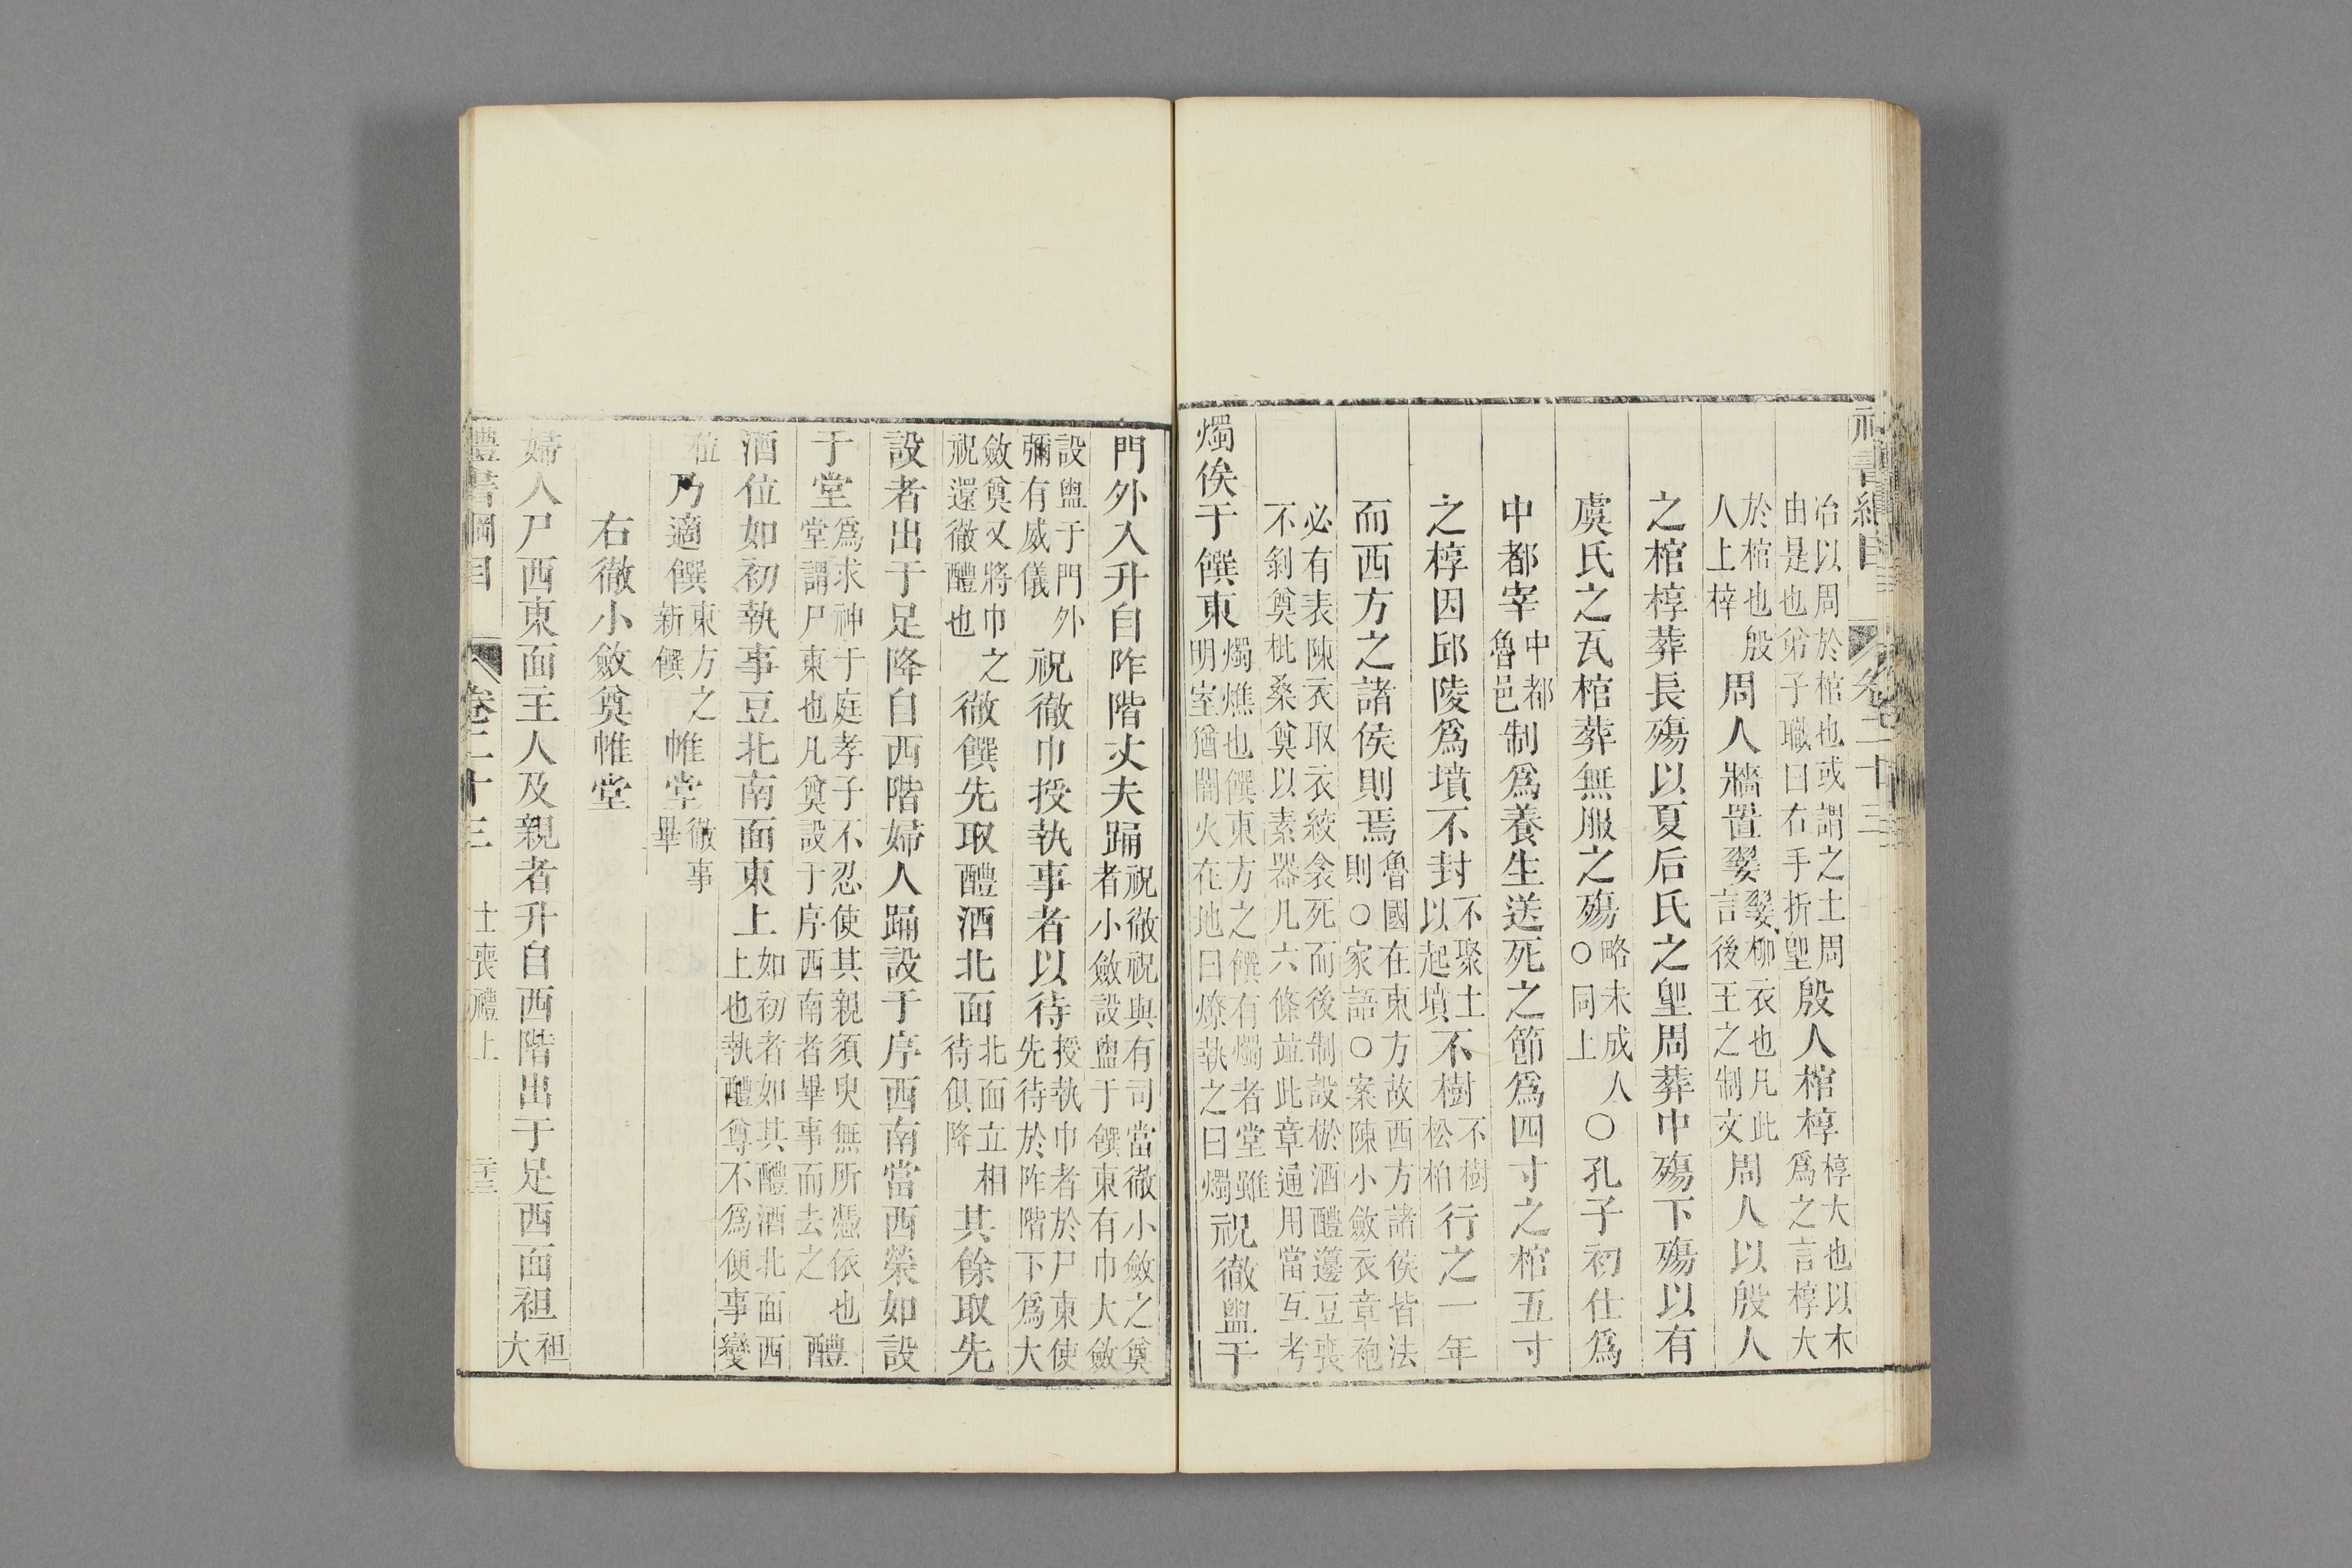 禮書綱目　卷二十三
冶以周於棺也或謂之土周
由是也弟子職曰右手折堲
殷人棺椁
椁大也以木
爲之言椁大
於棺也殷
人上梓
周人牆置翣
翣柳衣也凡此
言後王之制文
周人以殷人
之棺椁葬長殤以夏后氏之堲周葬中殤下殤以有
虞氏之瓦棺葬無服之殤
略未成人
○同上
○孔子初仕爲
中都宰
中都
魯邑
制爲養生送死之節爲四寸之棺五寸
之椁因邱陵爲墳不封
不聚土
以起墳
不樹
不樹
松柏
行之一年
而西方之諸侯則焉
魯國在東方故西方諸侯皆法
則○家語○案陳小斂衣章袍
必有表陳衣取衣絞衾死而後制設棜酒醴籩豆喪
不剝奠枇桑奠以素器凡六條並此章通用當互考
燭俟于饌東
燭燋也饌東方之饌有燭者堂雖
明室猶闇火在地曰燎執之曰燭
祝徹盥于
門外入升自阼階丈夫踊
祝徹祝與有司當徹小斂之奠
者小斂設盥于饌東有巾大斂
設盥于門外
彌有威儀
祝徹巾授執事者以待
授執巾者於尸東使
先待於阼階下爲大
斂奠又將巾之
祝還徹醴也
徹饌先取醴酒北面
北面立相
待俱降
其餘取先
設者出于足降自西階婦人踊設于序西南當西榮如設
于堂
爲求神于庭孝子不忍使其親須臾無所憑依也
堂謂尸東也凡奠設于序西南者畢事而去之
醴
酒位如初執事豆北南面東上
如初者如其醴酒北面西
上也執醴尊不爲便事變
位
乃適饌
東方之
新饌
帷堂
徹事
畢
右徹小斂奠帷堂
婦人尸西東面主人及親者升自西階出于足西面袒
袒
大
禮書綱目　卷二十三　士喪禮上